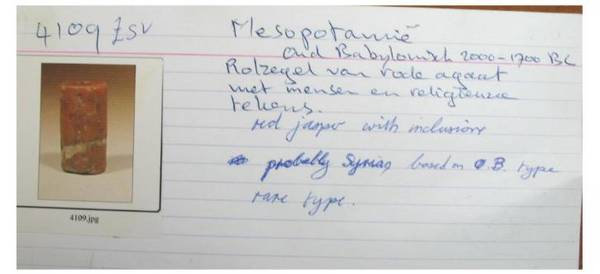 4109 ZSV
Mesopotamië
oud Babylonisch 2000-1700 BC
Rolzegel van rode agaat
met mensen en religieuze
tekens.
red jasper with inclusions
probably Syrian, based on O.B. type
rare type.
4109.jpg